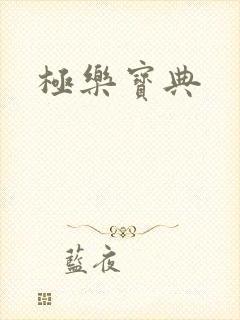 極樂寶典
藍夜